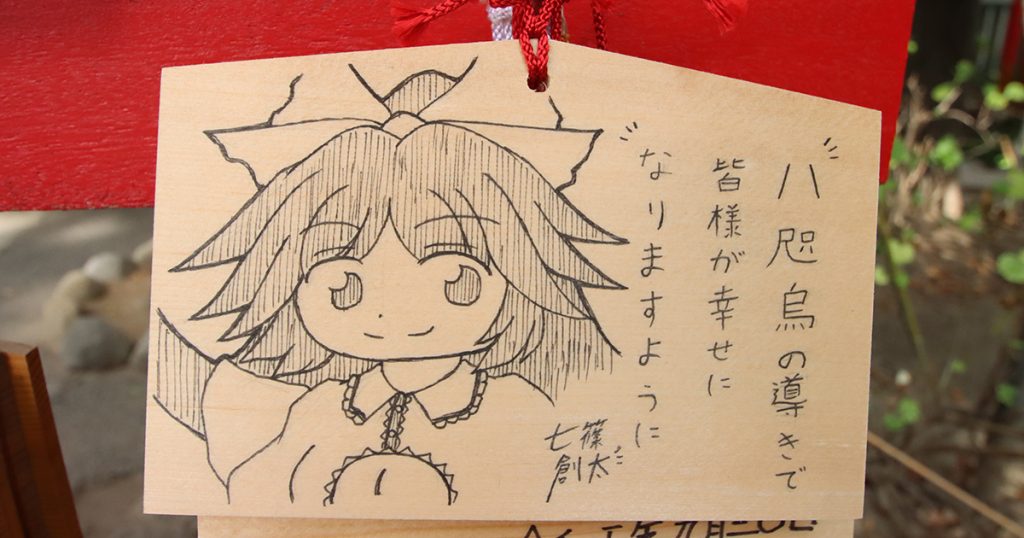 八咫烏の導きで
皆様が幸せに
なりますように
篠太
七創